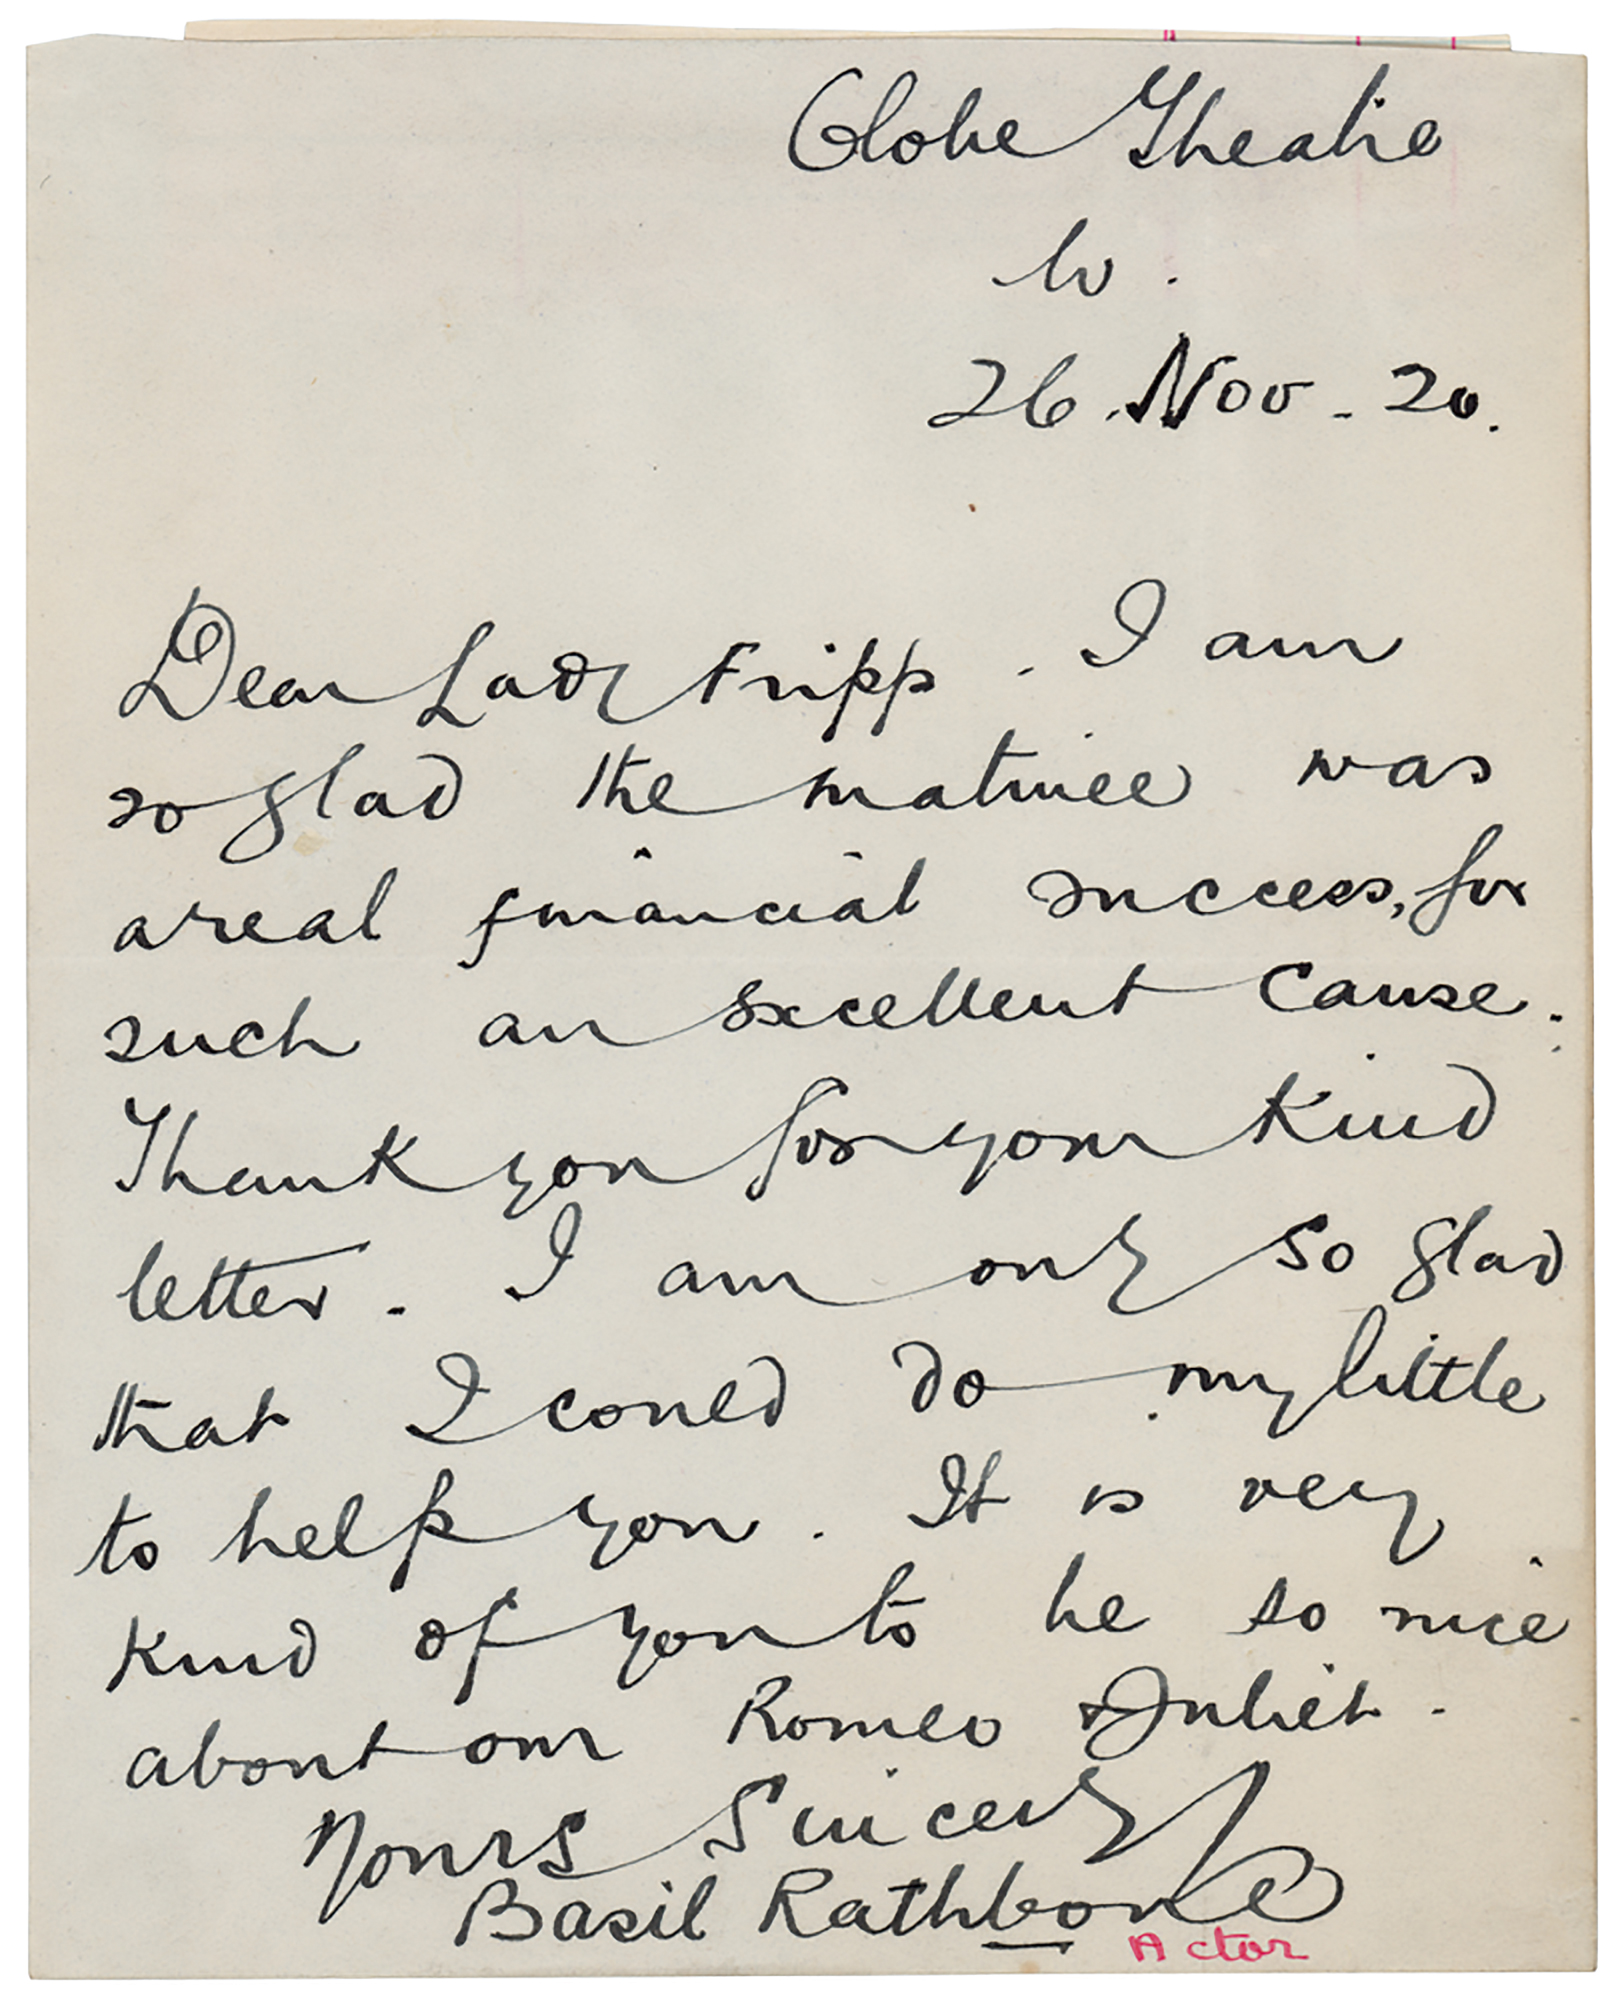 Globe Theatre
W.
26. Nov - 20.
Dear Lady Fripp. I am
so glad the matinee was
a real financial success, for
such an excellent cause.
Thank you for your kind
letter. I am only so glad
that I could do my little
to help you. It is very
kind of you to be so nice
about our Romeo & Juliet.
Yours Sincerely
Basil Rathbone
Actor